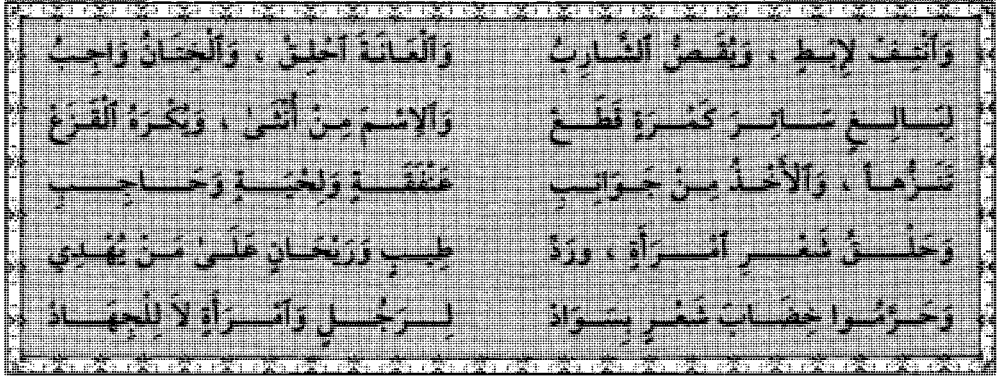 وَٱنْتِفْ لِإِبْطٍ ، وَيُقَصُّ ٱلشَّارِبُ وَٱلْعَانَةَ ٱحْلِقْ ، وَٱلْخِتَانُ وَاجِبُ
لِبَـالِـغٍ سَـاتِـرَ كَمْـرَةٍ قَطَـعْ وَٱلِاسْـمَ مِنْ أُنْثَىٰ ، وَيُكْرَهُ ٱلْقَزَعْ
تَنَـزُّهـاً ، وَٱلْأَخْـذُ مِـنْ جَـوَانِـبِ عَنْفَقَـةٍ وَلِحْيَـةٍ وَحَـاجِـبِ
وَحَلْـقُ شَعْـرِ ٱمْـرَأَةٍ ، وَرَدُّ طِيـبٍ وَرَيْحَانٍ عَلَـىٰ مَـنْ يُهْـدِي
وَحَـرَّمُـوا خِضَـابَ شَعْـرٍ بِسَـوَادْ لِـرَجُـلٍ وَٱمْـرَأَةٍ لاَ لِلْجِهَـادْ